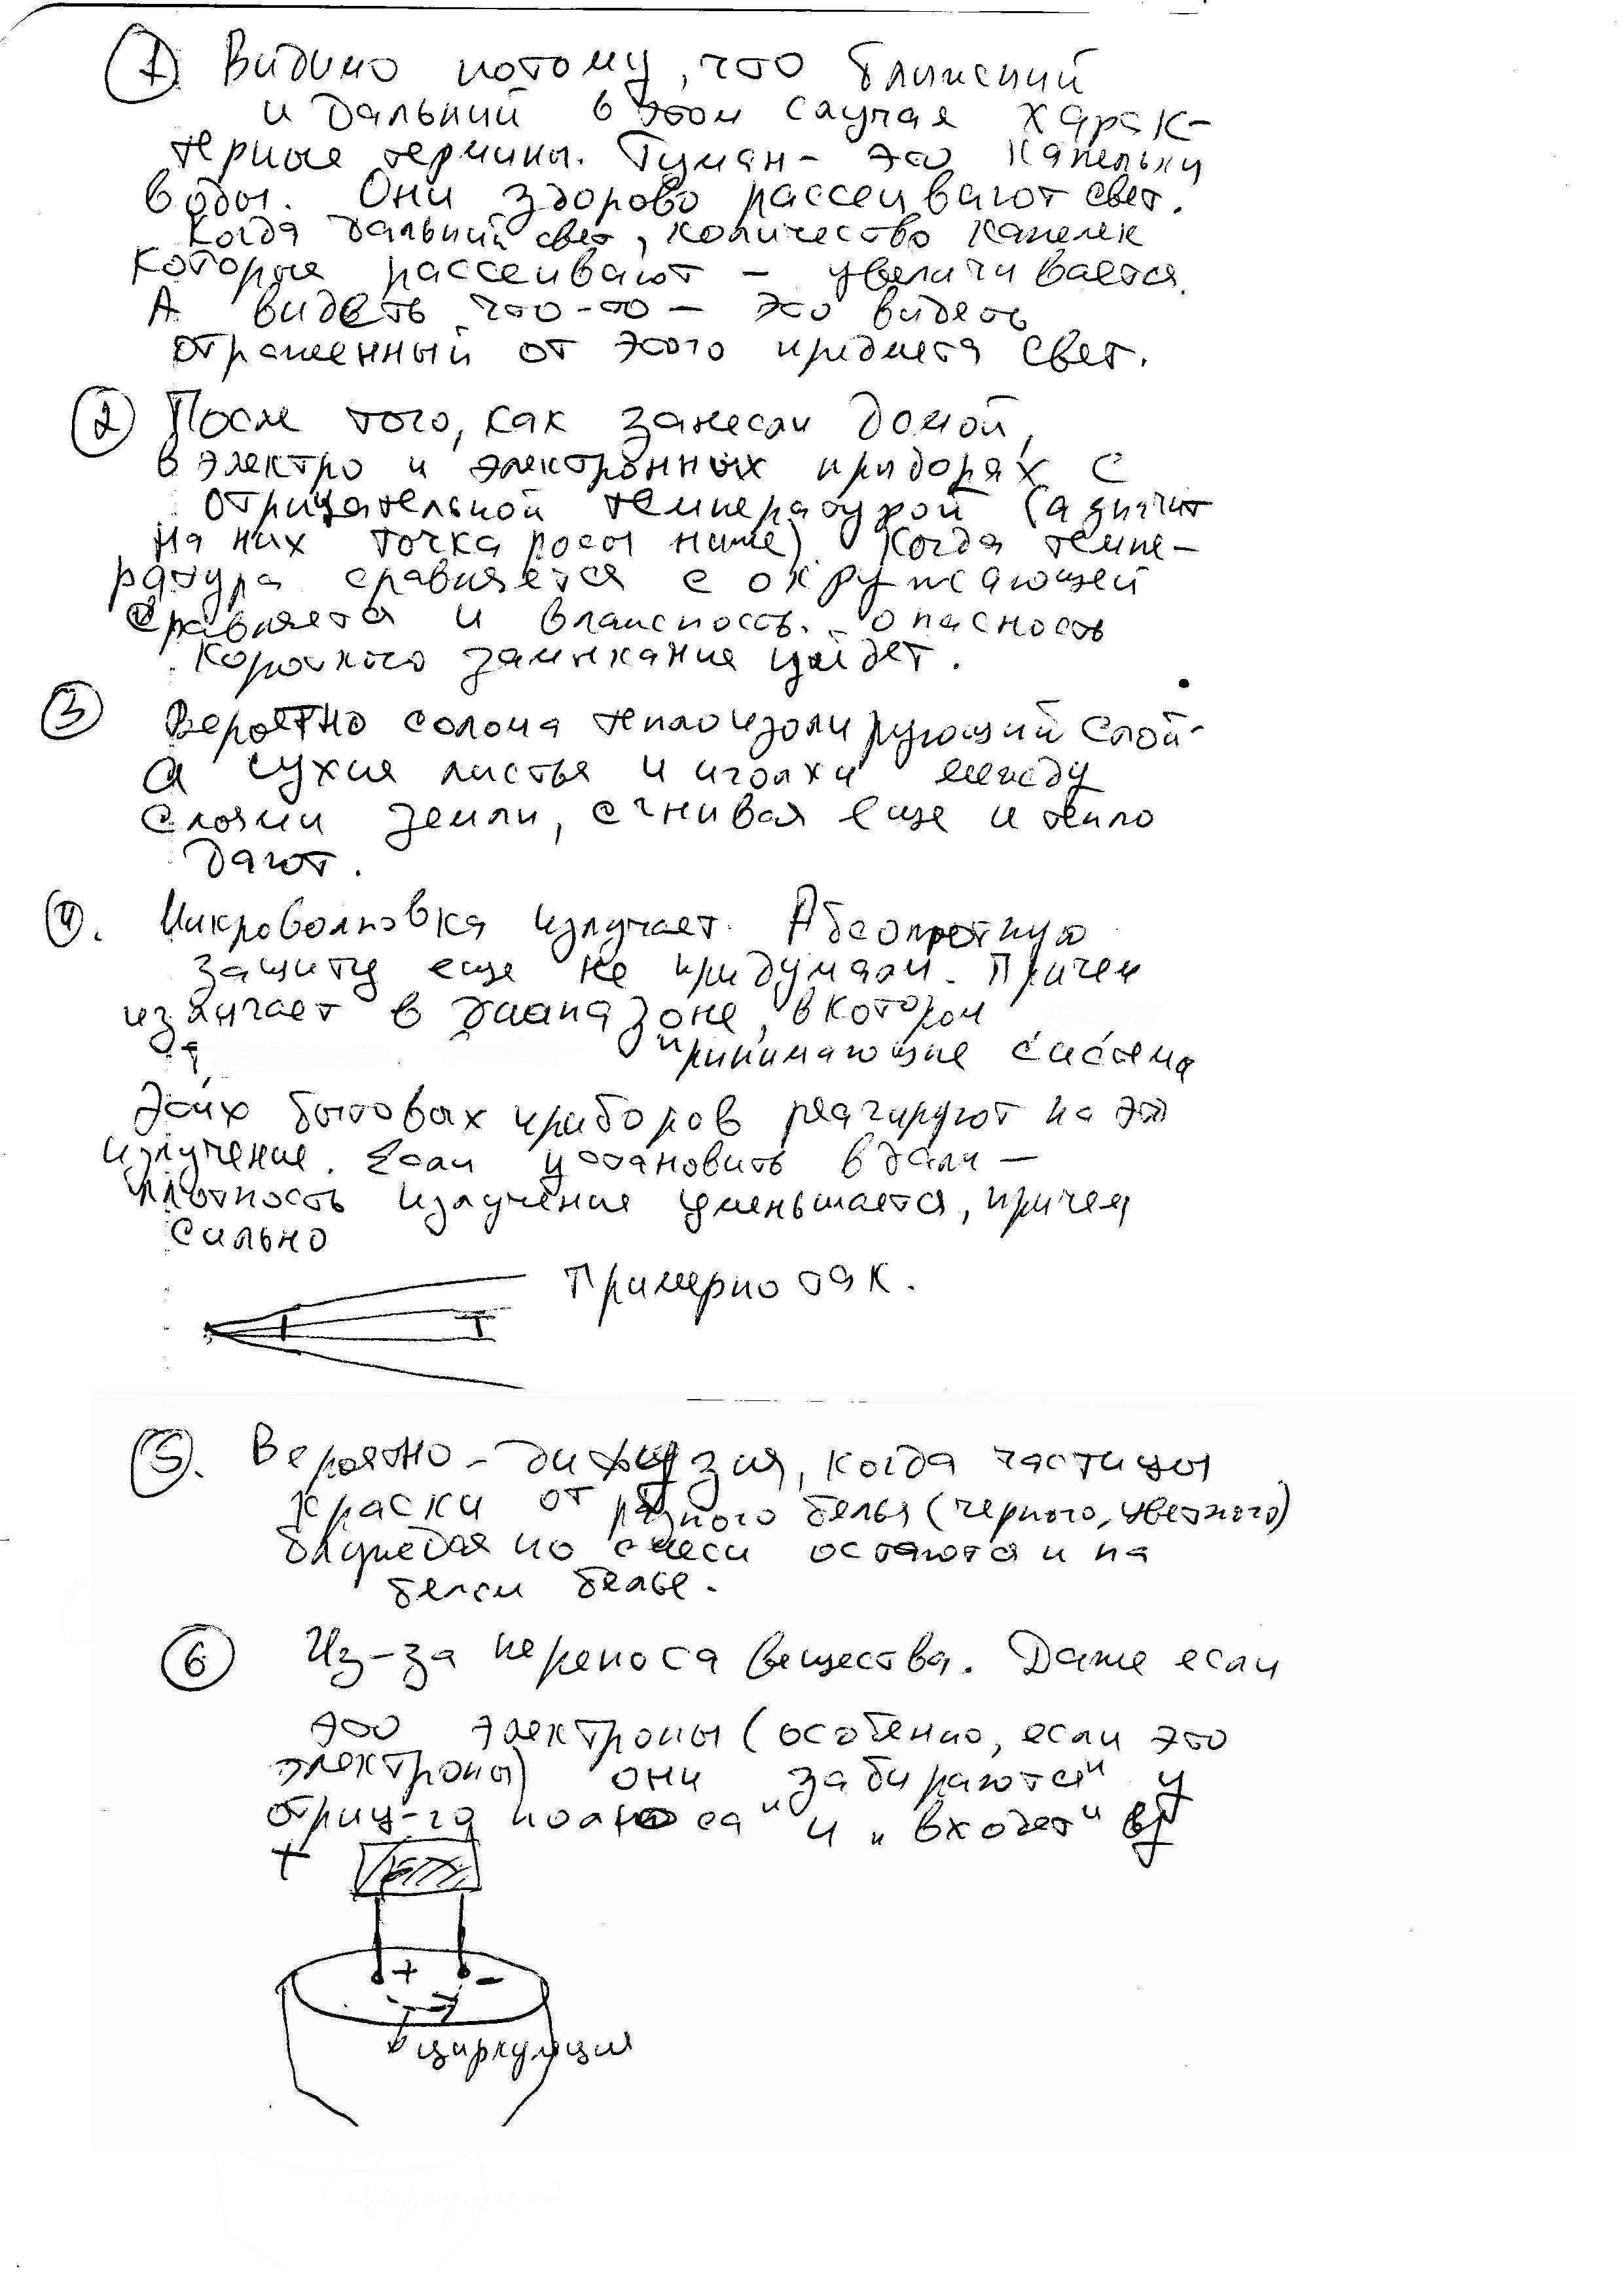 1. Видимо потому, что ближний
и дальний в этом случая харак-
терные термины. Туман - это капельки
воды. Они здорово рассеивают свет.
Когда дальний свет, количество капелек
которые рассеивают - увеличивается.
А видеть что-то - это видеть
отраженный от этого предмета свет.
2 После того, как занесли домой,
в электро и электронных приборах с
отрицательной температурой (а значит
на них точка росы ниже) Когда темпе-
ратура сравняется с окружающей
сравняется и влажность. - опасность
короткого замыкания уйдет.
3 Вероятно солома теплоизолирующий слой
а сухие листья и иголки между
слоями земли, сгнивая еще и тепло
дают.
4. Микроволновка излучает. Абсолютную
защиту еще не придумали. Причем
излучает в диапазоне, в котором
принимающие система
этих бытовых приборов реагируют на это
излучение. Если установить вдали -
плотность излучения уменьшается, причем
сильно
Примерно так.
5. Вероятно - диффузия, когда частицы
краски от разного белья (черного, цветного)
блуждая по смеси остаются и на
белом белье.
6 Из-за переноса вещества. Даже если
это электроны (особенно, если это
электроны) они "забираются" у
отриц-го полюса" и "входят" в
+
+ -
циркуляция